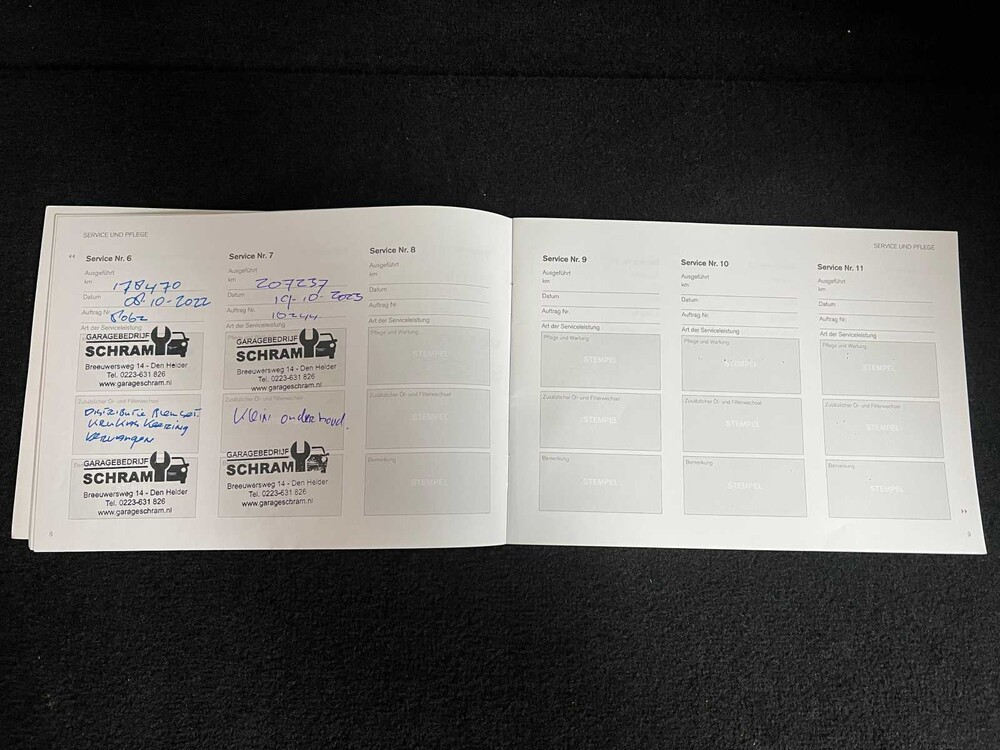 SERVICE UND PFLEGE
Service Nr. 6
Ausgeführt
km
178470
Datum
08-10-2022
Auftrag Nr.
8062
Art der Serviceleistung
GARAGEBEDRIJF
SCHRAM
Breeuwersweg 14 - Den Helder
Tel. 0223-631 826
www.garageschram.nl
Zusätzlicher Öl- und Filterwechsel
Distributie
Keerring
Vervangen
GARAGEBEDRIJF
SCHRAM
Breeuwersweg 14 - Den Helder
Tel. 0223-631 826
www.garageschram.nl
8
Service Nr. 7
Ausgeführt
km
207237
Datum
19-10-2023
Auftrag Nr.
10244
Art der Serviceleistung
GARAGEBEDRIJF
SCHRAM
Breeuwersweg 14 - Den Helder
Tel. 0223-631 826
www.garageschram.nl
Zusätzlicher Öl- und Filterwechsel
Klein onderhoud.
GARAGEBEDRIJF
SCHRAM
Breeuwersweg 14 - Den Helder
Tel. 0223-631 826
www.garageschram.nl
Service Nr. 8
Ausgeführt
km
Datum
Auftrag Nr.
Art der Serviceleistung
Pflege und Wartung
STEMPEL
Zusätzlicher Öl- und Filterwechsel
STEMPEL
Bemerkung
STEMPEL
SERVICE UND PFLEGE
Service Nr. 9
Ausgeführt
km
Datum
Auftrag Nr.
Art der Serviceleistung
Pflege und Wartung
STEMPEL
Zusätzlicher Öl- und Filterwechsel
STEMPEL
Bemerkung
STEMPEL
Service Nr. 10
Ausgeführt
km
Datum
Auftrag Nr.
Art der Serviceleistung
Pflege und Wartung
STEMPEL
Zusätzlicher Öl- und Filterwechsel
STEMPEL
Bemerkung
STEMPEL
Service Nr. 11
Ausgeführt
km
Datum
Auftrag Nr.
Art der Serviceleistung
Pflege und Wartung
STEMPEL
Zusätzlicher Öl- und Filterwechsel
STEMPEL
Bemerkung
STEMPEL
9